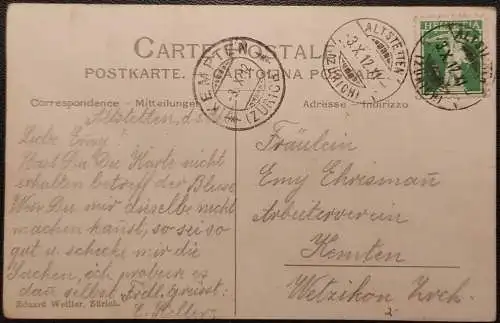 CARTE POSTALE
POSTKARTE. CARTOLINA PO
Correspondence - Mitteilungen Adresse - Indirizzo
KEMPTEN
-3.X.12
(ZÜRICH)
ALTSTETTEN
-3.X.12.
(ZÜRICH)
HELVETIA
Altstetten, d.
Liebe Emy!
Hast Du Die Karte nicht
erhalten betreff der Bluse
Wenn Du mir dieselbe nicht
machen kannst, so sei so
gut u. schicke mir die
Sachen, ich probiere es
dan selbst Frdl. grüsst:
E. Heller
Eduard Weiller, Zürich.
Fräulein
Emy Ehrismañ
Arbeiterverein
Kemten
Wetzikon Zrch.